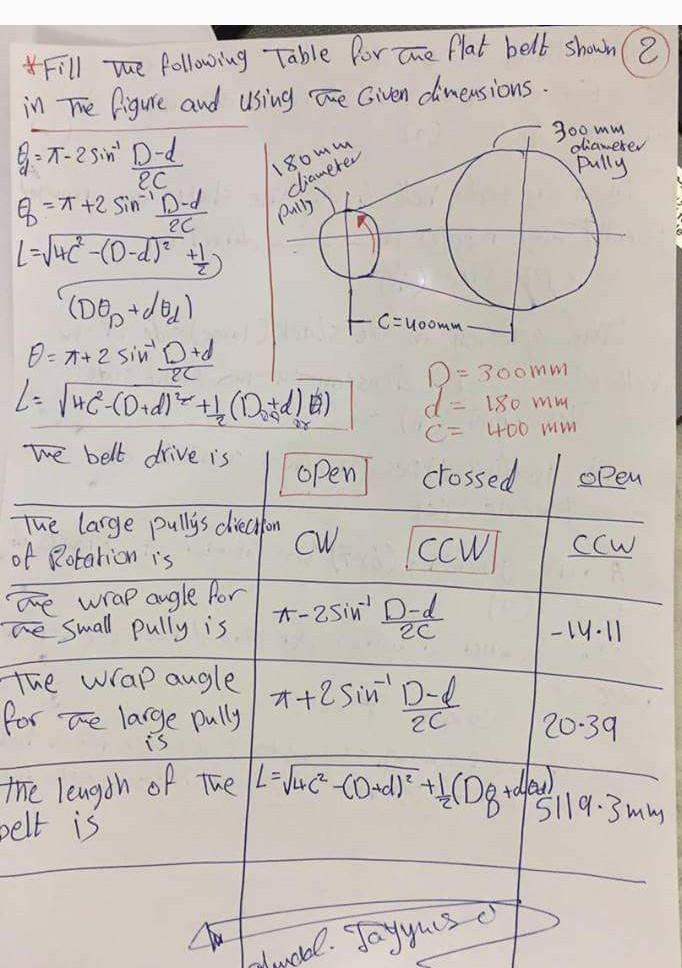 *Fill The following Table for The flat belt shown 2
in The figure and using The Given dimensions.
θd = π - 2 sin⁻¹ D-d / 2C
θD = π + 2 sin⁻¹ D-d / 2C
L = √4C² - (D-d)² + 1/2
(DθD + dθd)
θ = π + 2 sin⁻¹ D+d / 2C
L = √4C² - (D+d)² + 1/2 (D+d) θ
180 mm
diameter
pully
300 mm
diameter
pully
C = 400mm
D = 300mm
d = 180 mm
C = 400 mm
The belt drive is open crossed open
The large pullys direction
of Rotation is CW CCW CCW
The wrap angle for
The small pully is π - 2 sin⁻¹ D-d / 2C -14.11
The wrap angle
for The large pully
is π + 2 sin⁻¹ D-d / 2C 20.39
The length of The
belt is L = √4C² - (D+d)² + 1/2 (DθD + dθd) 5119.3mm